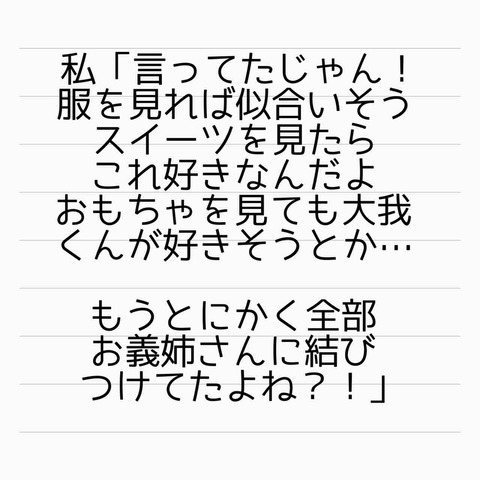 私「言ってたじゃん！
服を見れば似合いそう
スイーツを見たら
これ好きなんだよ
おもちゃを見ても大我
くんが好きそうとか…
もうとにかく全部
お義姉さんに結び
つけてたよね？！」